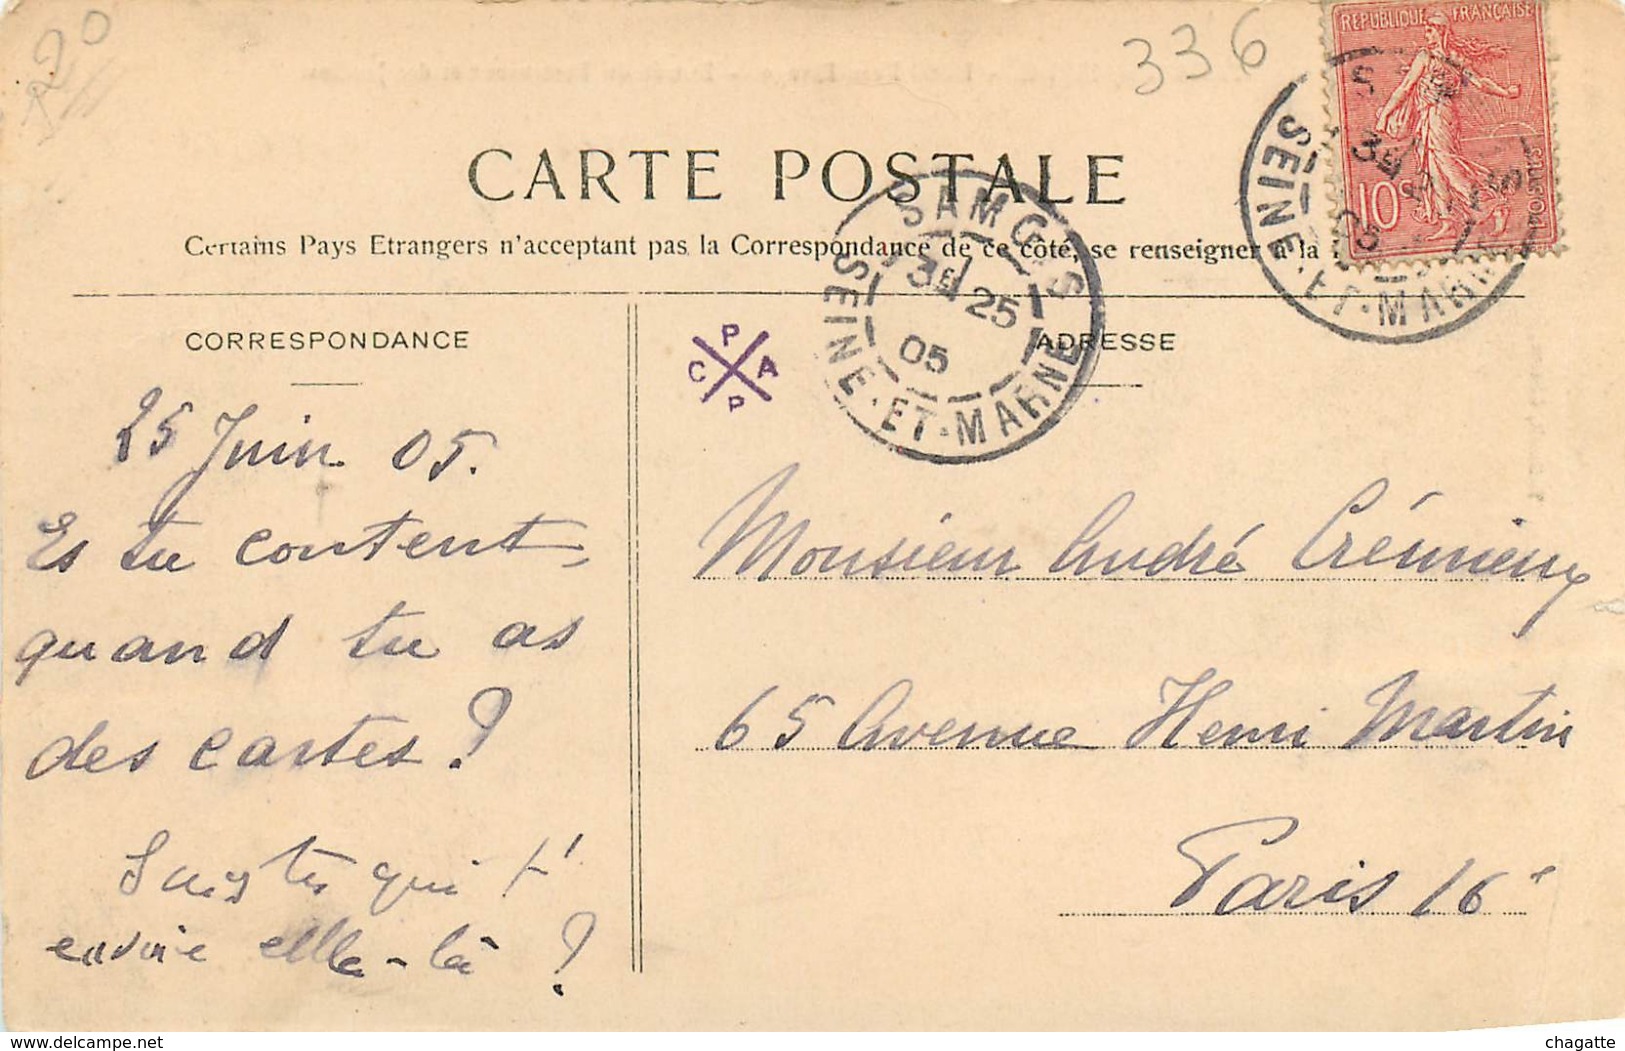 120
336
RÉPUBLIQUE FRANÇAISE
10c
POSTES
CARTE POSTALE
Certains Pays Etrangers n'acceptant pas la Correspondance de ce côté, se renseigner à la
SAMOIS
3E 25
05
SEINE-ET-MARNE
SEINE-ET-MARNE
CORRESPONDANCE
P
C A
P
ADRESSE
25 Juin 05.
Es tu content
quand tu as
des cartes ?
Sais tu qui t'
envoie celle-là ?
Monsieur André Crémieux
65 Avenue Henri Martin
Paris 16e
delcampe.net
chagatte